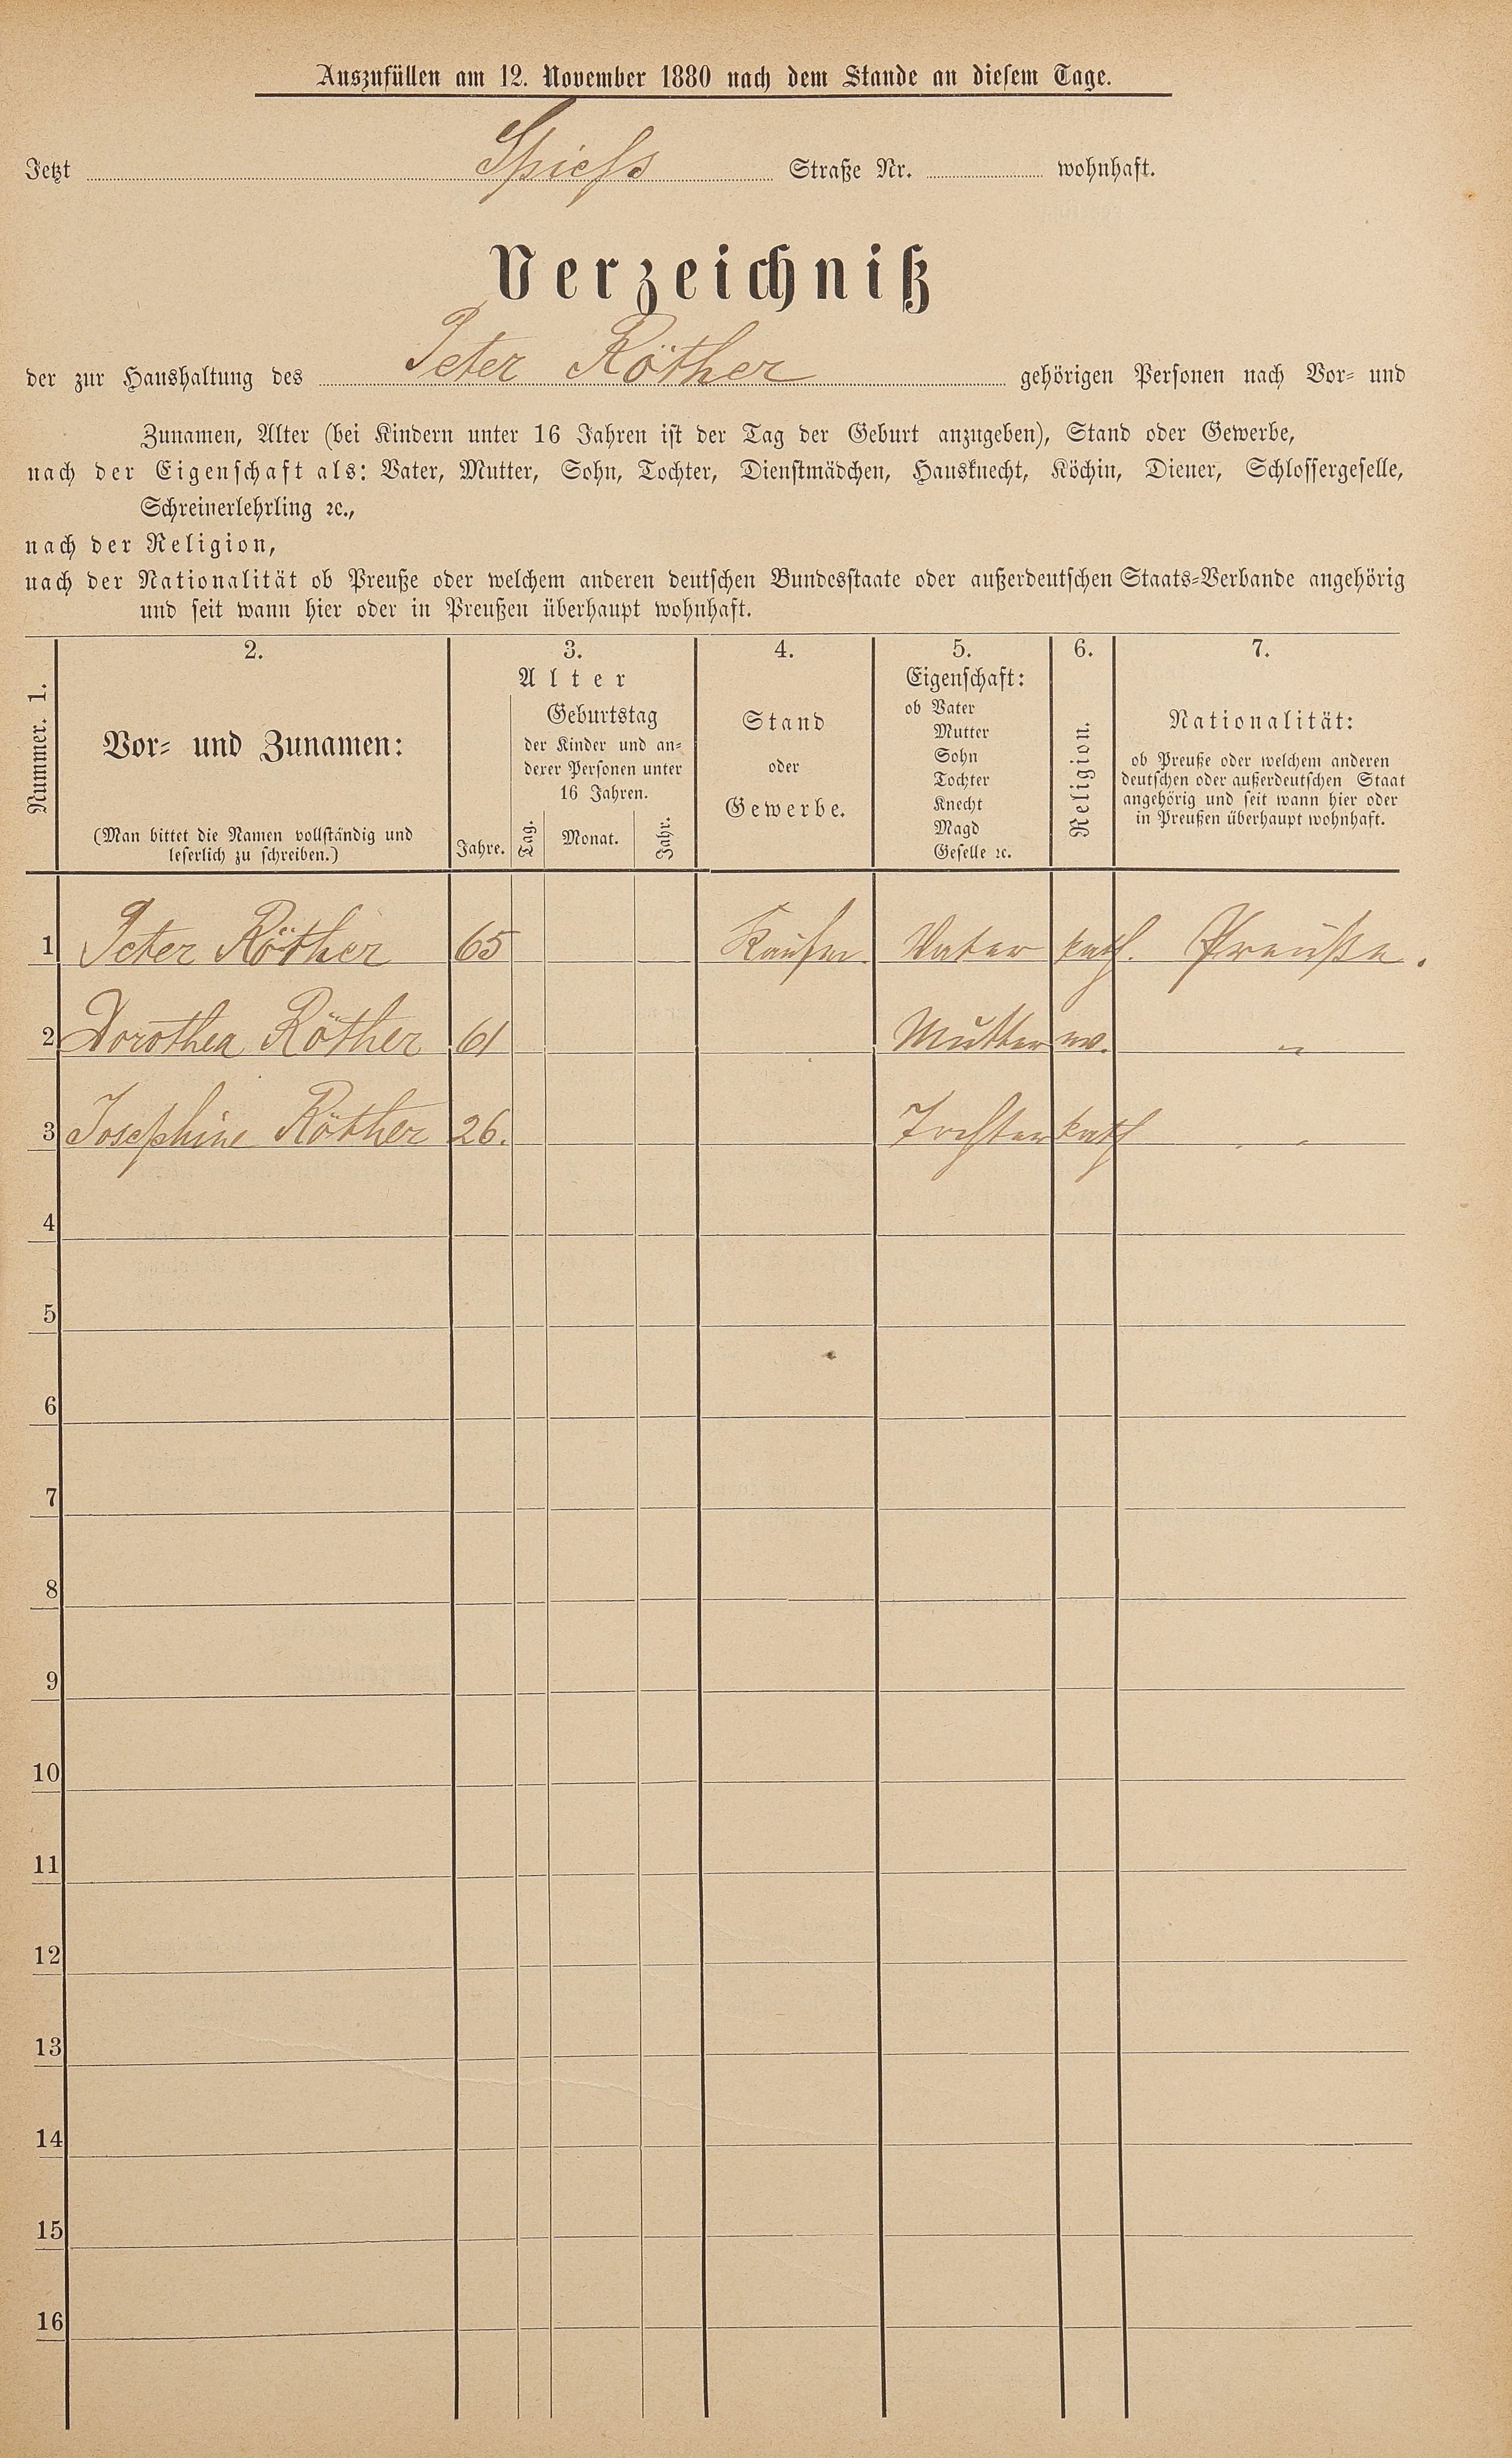 Auszufüllen am 12. November 1880 nach dem Stande an diesem Tage.
Jetzt Spiess Straße Nr. wohnhaft.
Verzeichniß
der zur Haushaltung des Peter Röther gehörigen Personen nach Vor- und
Zunamen, Alter (bei Kindern unter 16 Jahren ist der Tag der Geburt anzugeben), Stand oder Gewerbe,
nach der Eigenschaft als: Vater, Mutter, Sohn, Tochter, Dienstmädchen, Hausknecht, Köchin, Diener, Schlossergeselle,
Schreinerlehrling ꝛc.,
nach der Religion,
nach der Nationalität ob Preuße oder welchem anderen deutschen Bundesstaate oder außerdeutschen Staats-Verbande angehörig
und seit wann hier oder in Preußen überhaupt wohnhaft.
Nummer. 1.
2.
Vor- und Zunamen:
(Man bittet die Namen vollständig und
leserlich zu schreiben.)
3.
Alter
Jahre.
Geburtstag
der Kinder und an-
derer Personen unter
16 Jahren.
Tag. Monat. Jahr.
4.
Stand
oder
Gewerbe.
5.
Eigenschaft:
ob Vater
Mutter
Sohn
Tochter
Knecht
Magd
Geselle ꝛc.
6.
Religion.
7.
Nationalität:
ob Preuße oder welchem anderen
deutschen oder außerdeutschen Staat
angehörig und seit wann hier oder
in Preußen überhaupt wohnhaft.
1 Peter Röther 65 Vater kath. Preuße.
2 Dorothea Röther 61 Mutter "
3 Josephine Röther 26. Tochter kath " "
4
5
6
7
8
9
10
11
12
13
14
15
16